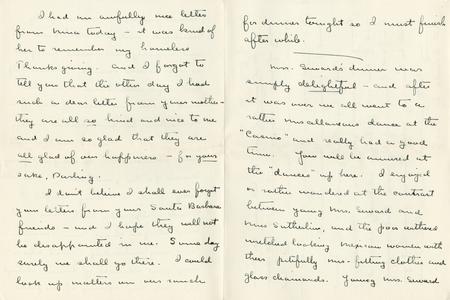 I had an awfully nice letter
from Mina today – it was kind of
her to remember my homeless
Thanksgiving. And I forgot to
tell you that the other day I had
such a dear letter from your mother –
they are all so kind and nice to me
and I am so glad that they are
all glad of our happiness – for your
sake, Darling.
I don't believe I shall ever forget
your letter from your Santa Barbara
friends – and I hope they will not
be disappointed in me. Some day
surely we shall go there. I could
look up matters in our much
for dinner tonight so I must finish
after while.
Mrs. Seward's dinner was
simply delightful – and after
it was over we all went to a
rather miscellaneous dance at the
"Casino" and really had a good
time. You will be amused at
the "dances" up here. I enjoyed
or rather wondered at the contrast
between young Mrs. Seward and
Mrs. Sutherlin, and the poor withered
wretched looking Mexican women with
their pitifully ill-fitting clothes and
glass diamonds. Young Mrs. Seward